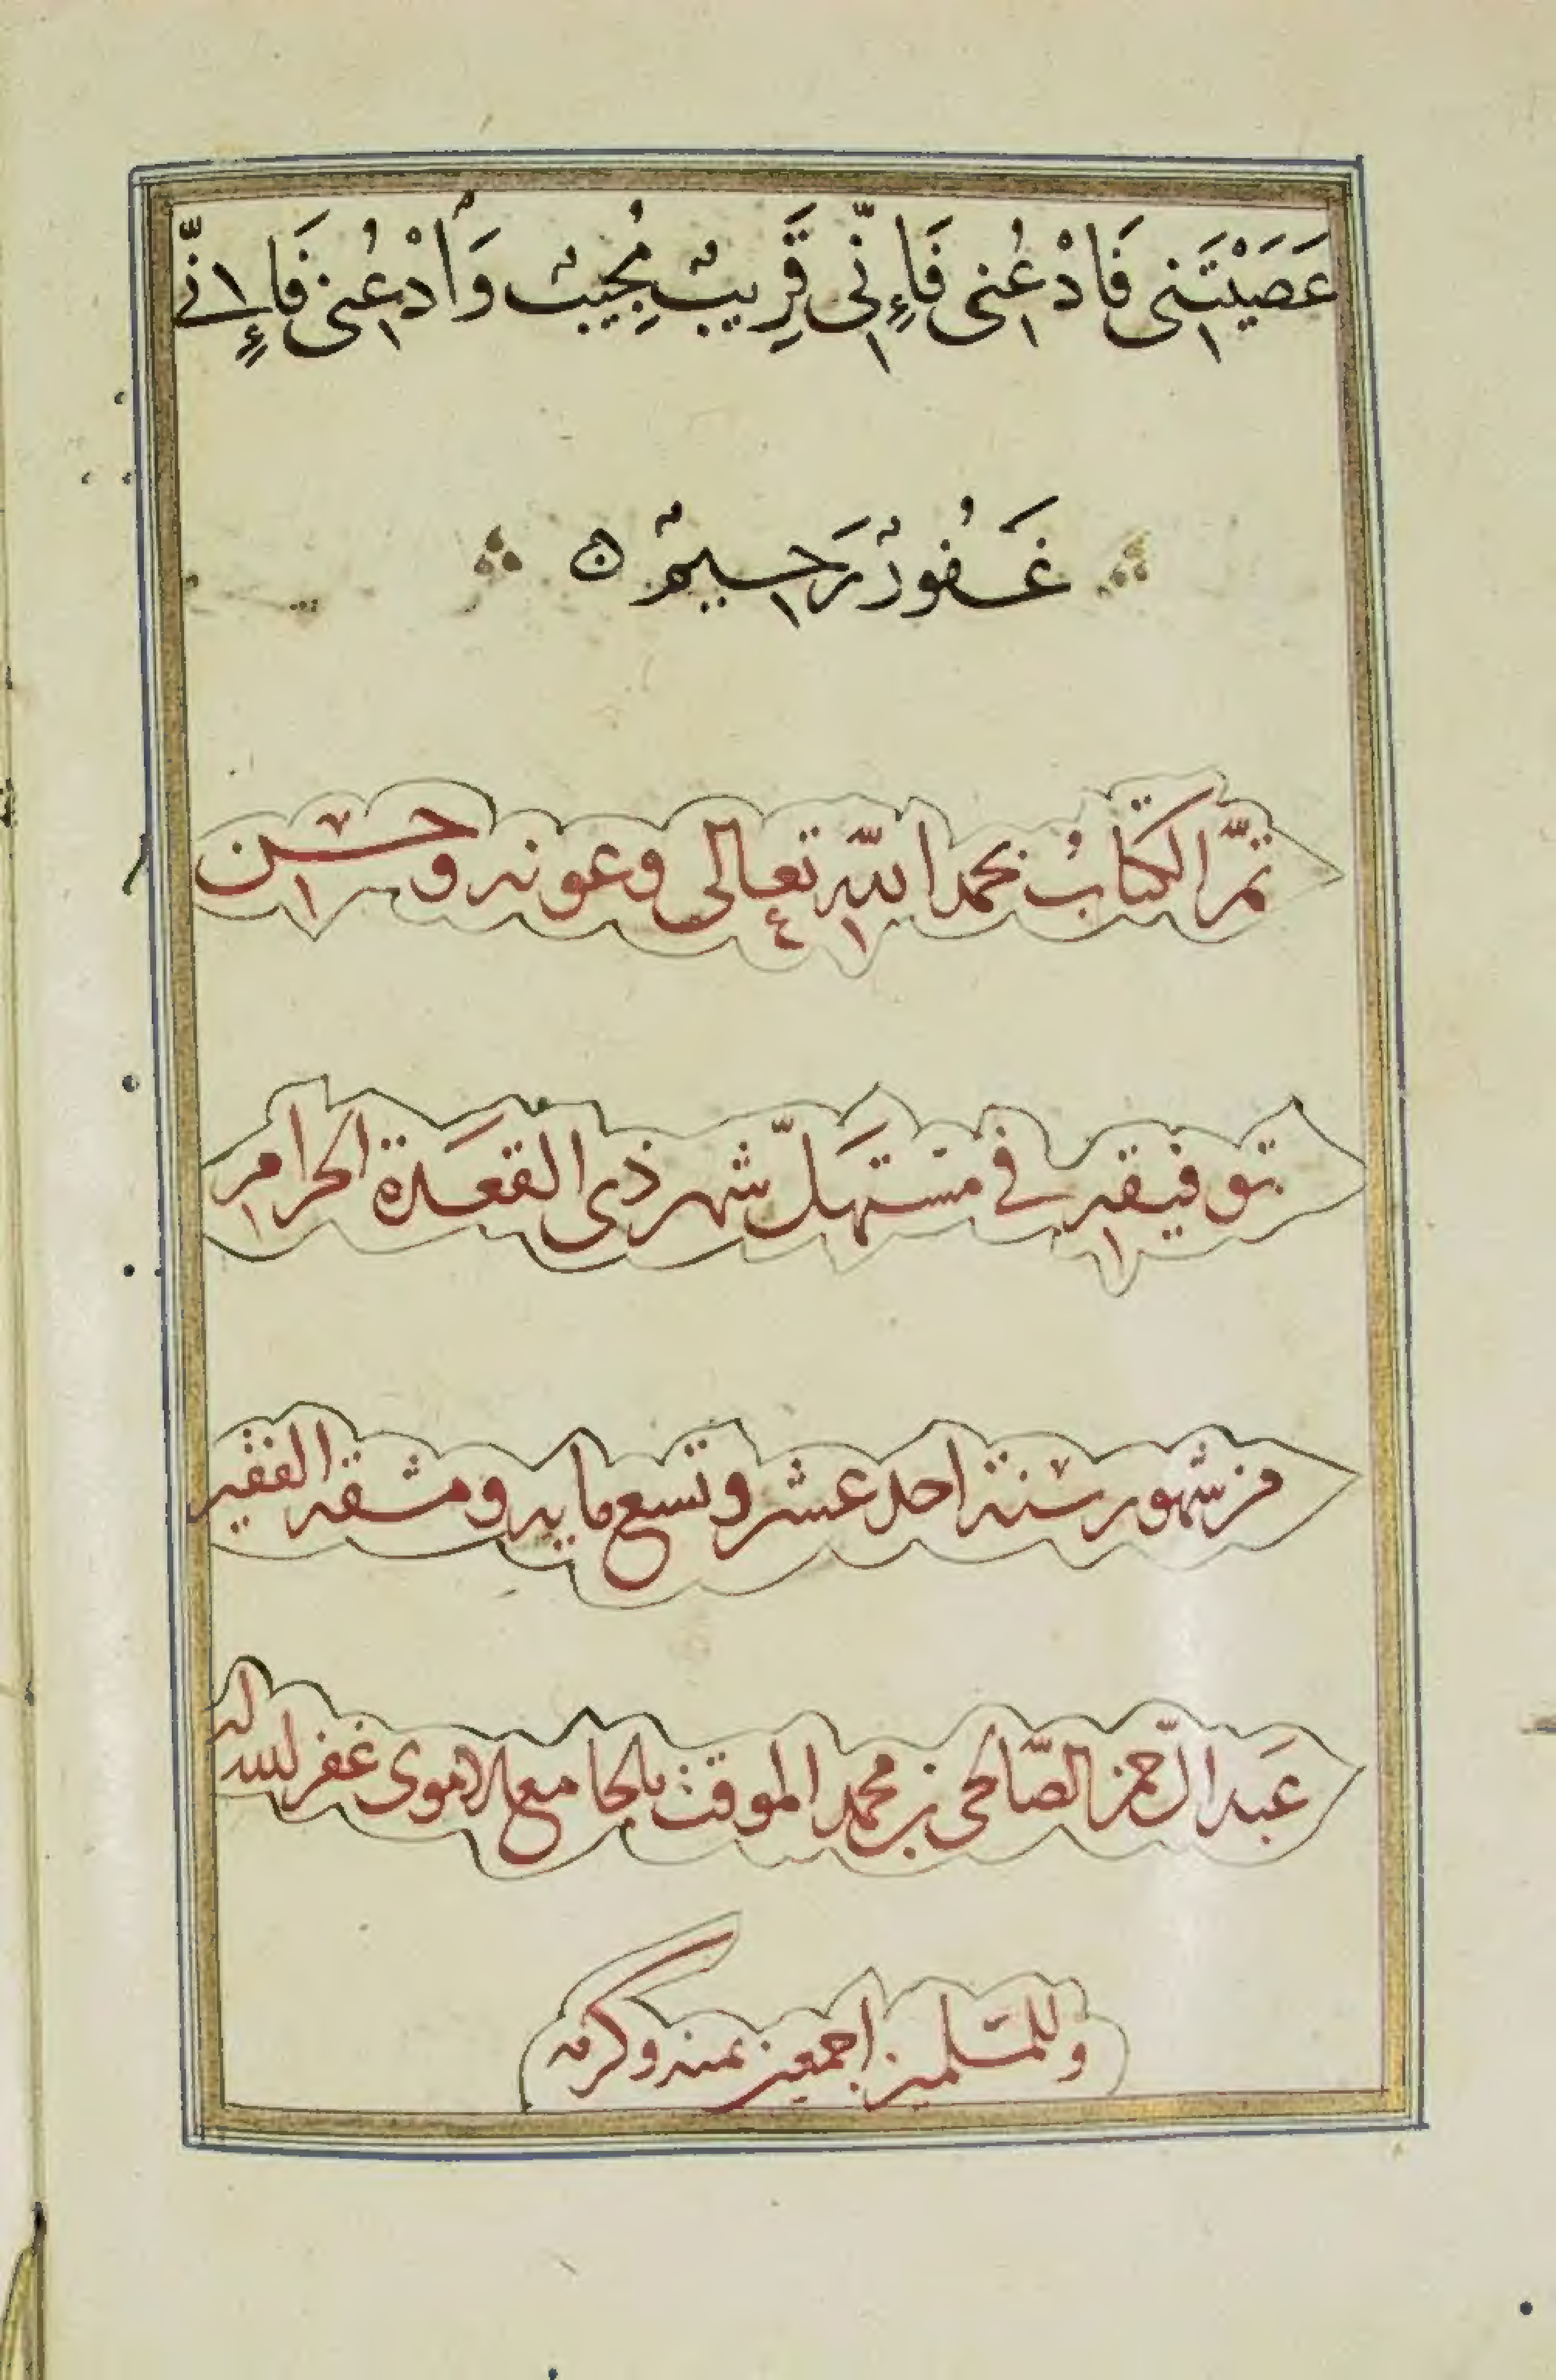 عَصَيْتَنِي فَادْعُنِي فَإِنِّي قَرِيبٌ مُجِيبٌ وَادْعُنِي فَإِنِّي
غَفُورٌ رَحِيمٌ ن
تمّ الكتابُ بحمد اللّه تعالى وعونه وحسن
توفيقه في مستهَلّ شهر ذي القعَدة الحرام
من شهور سنة احد عشر وتسع مايه ومشقه الفقير
عَبد الرّحمن الصّالحي بن محمد الموقت بالجامع الاموي غفر الله له
وللمسلمين اجمعين بمنه وكرمه